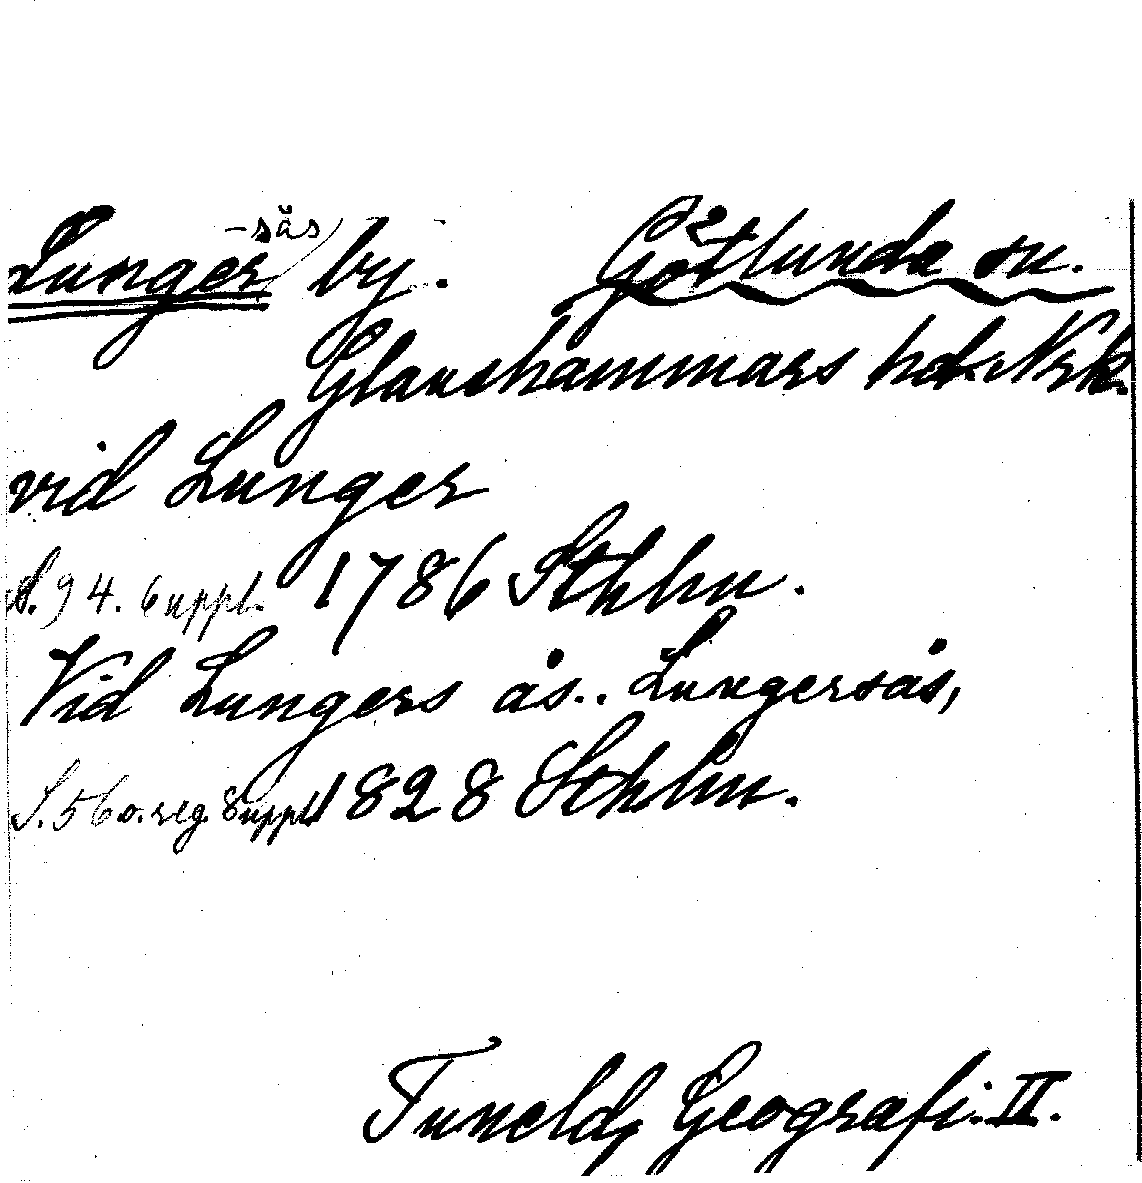 Lunger -sås by. Götlunda sn.
Glanshammars hd. Nrk.
vid Lunger
S. 94. 6 uppl. 1786 Sthlm.
Vid Lungers ås.. Lungersås,
S. 560. reg. 8 uppl. 1828 Sthlm.
Tuneld, Geografi. II.